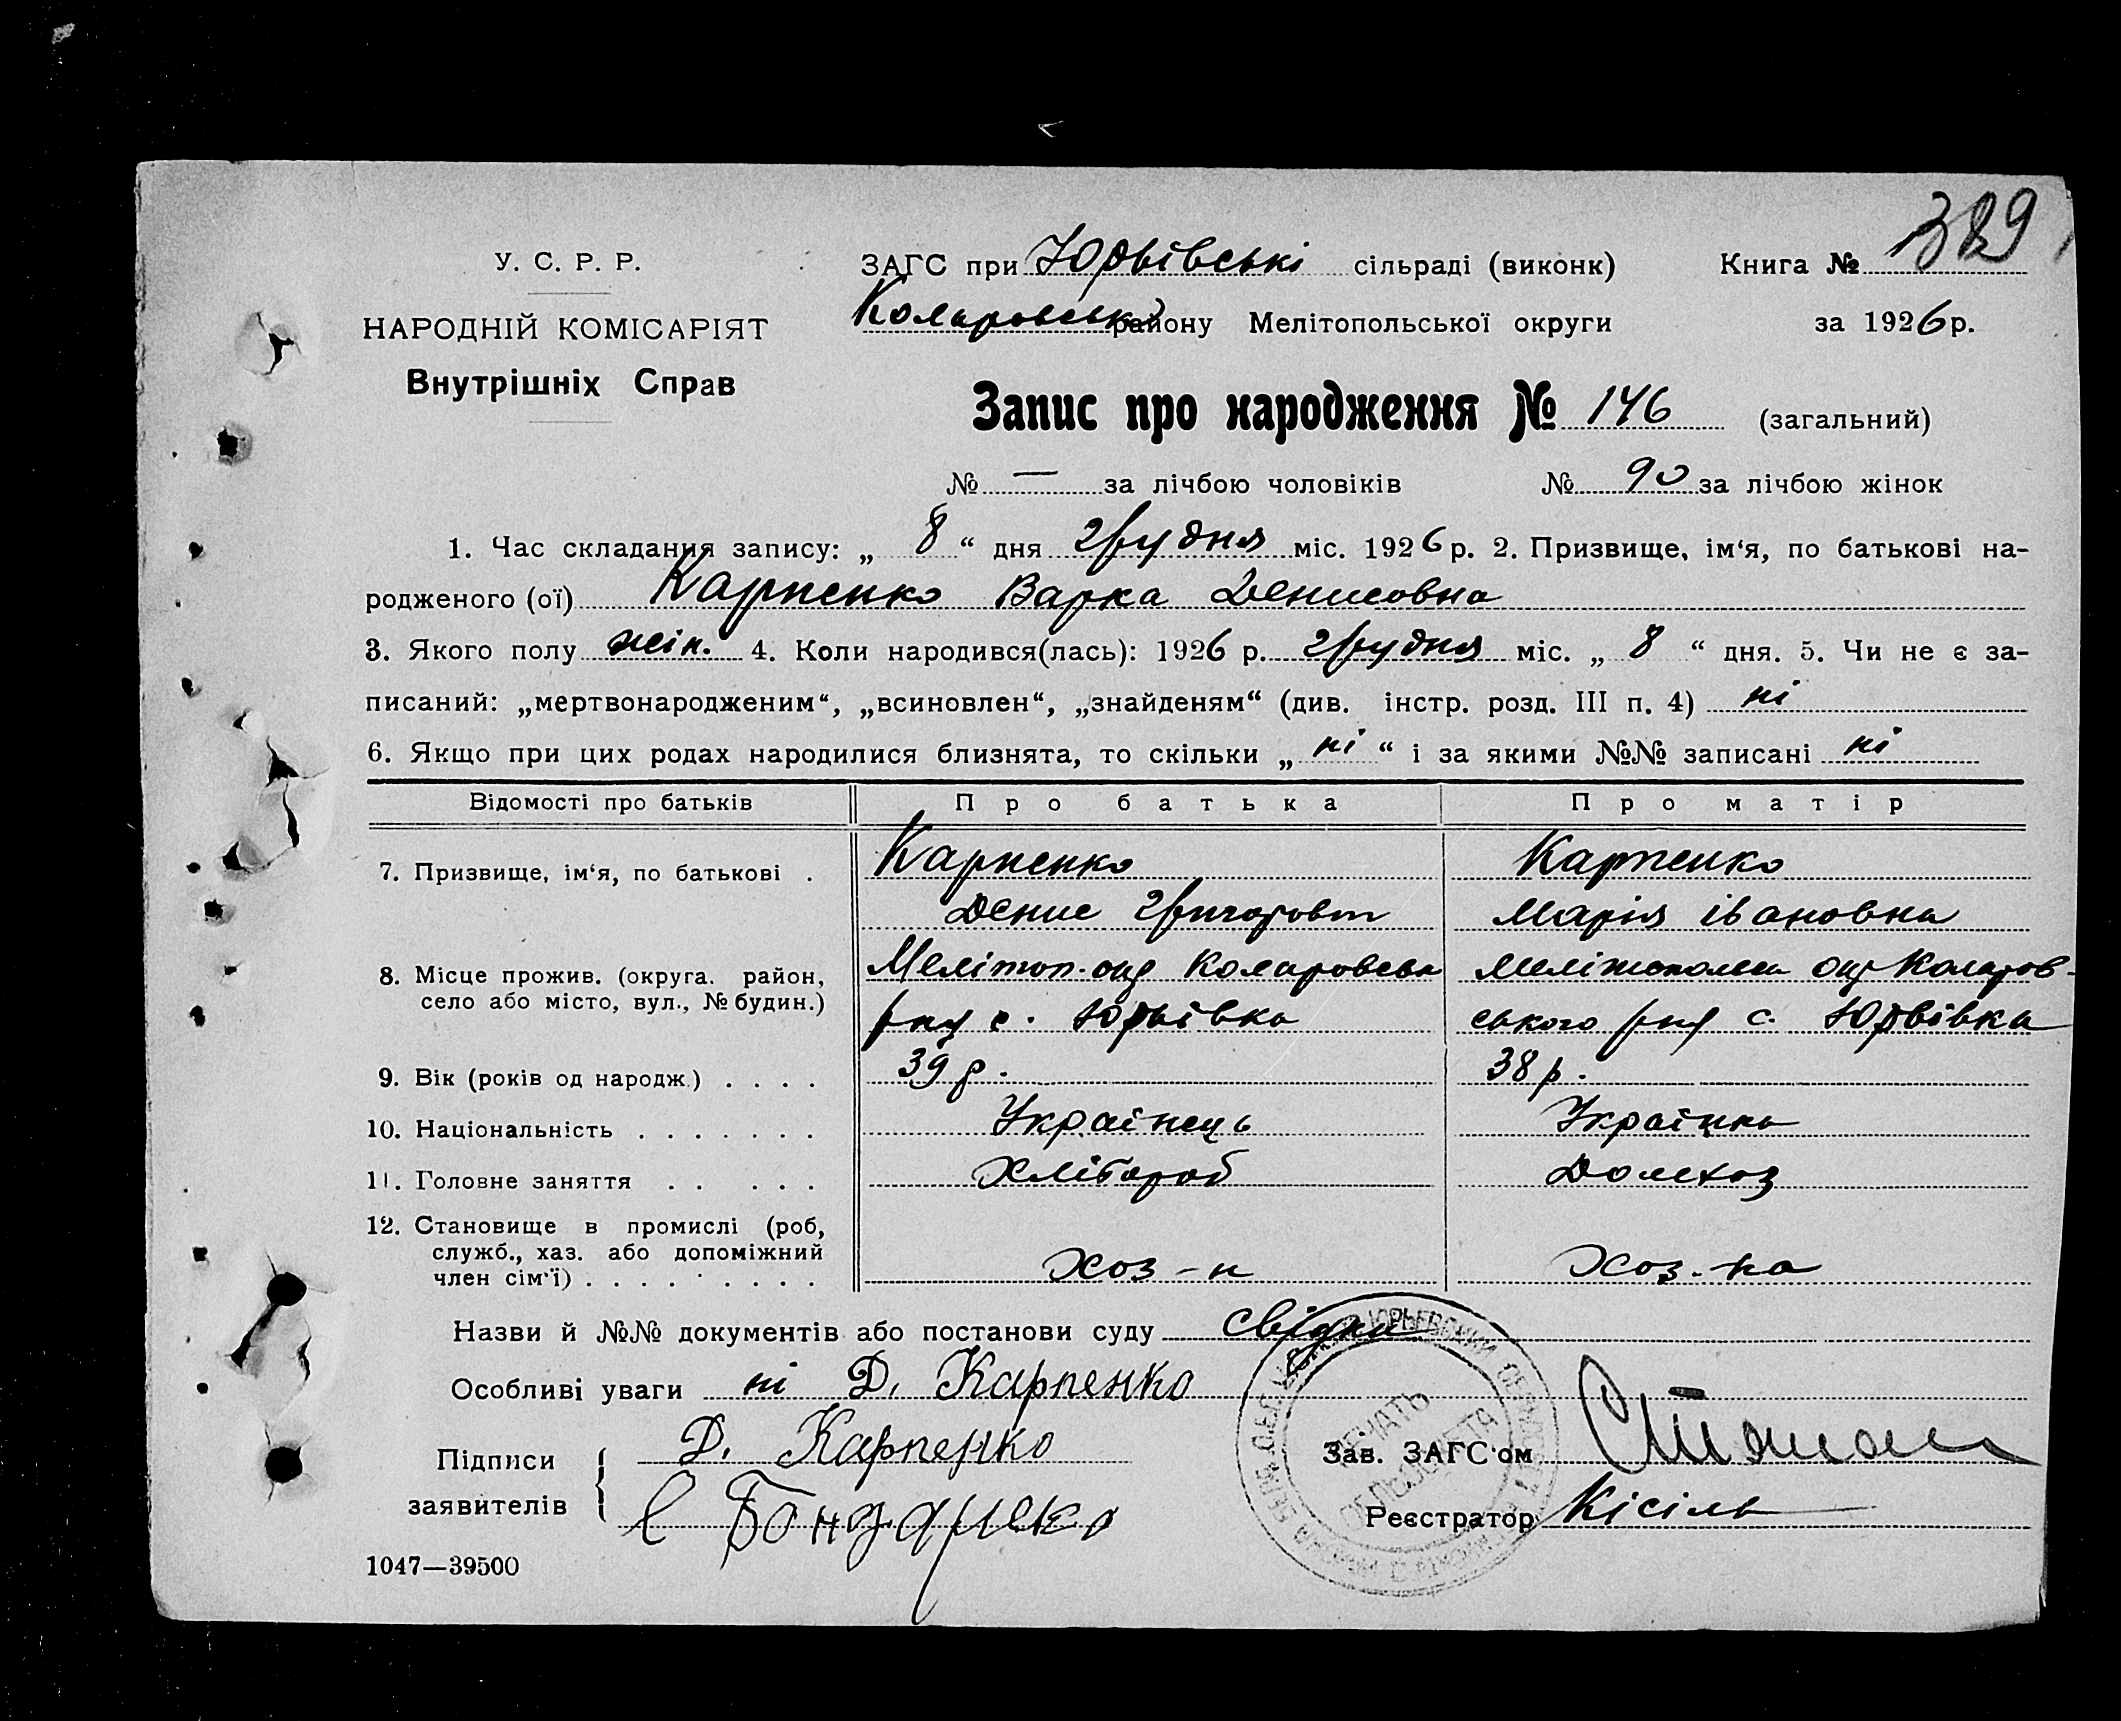 389
У. С. Р. Р.
ЗАГС при Юрьівські сільраді (виконк) Книга №
НАРОДНІЙ КОМІСАРІЯТ
Коларовськ району Мелітопольської округи за 1926 р.
Внутрішніх Справ
Запис про народження № 146 (загальний)
№ — за лічбою чоловіків № 90 за лічбою жінок
1. Час складання запису: „ 8 “ дня Грудня міс. 1926 р. 2. Призвище, ім‘я, по батькові на-
родженого (ої) Карпенко Варка Денисовна
3. Якого полу жін. 4. Коли народився(лась): 1926 р. Грудня міс. „ 8 “ дня. 5. Чи не є за-
писаний: „мертвонародженим“, „всиновлен“, „знайденям“ (див. інстр. розд. III п. 4) ні
6. Якщо при цих родах народилися близнята, то скільки „ ні “ і за якими №№ записані ні
Відомості про батьків Про батька Про матір
7. Призвище, ім‘я, по батькові . Карпенко Карпенко
Денис Григоровт Марія івановна
8. Місце прожив. (округа. район, Меліт оп. окр Коларовськ Мелітопольськ окр Коларов-
село або місто, вул., № будин.) рну с. Юрьівка ського рну с. Юрьвівка
9. Вік (років од народж.) . . . . 39 р. 38 р.
10. Національність . . . . . . . Українець Українка
11. Головне заняття . . . . . Хлібороб Домхоз
12. Становище в промислі (роб,
служб., хаз. або допоміжний
член сім‘ї) . . . . . . . . . Хоз-н Хоз-ка
Назви й №№ документів або постанови суду свідки
Особливі уваги ні Д. Карпенко
Підписи Д. Карпенко Зав. ЗАГС‘ом
заявителів Бондаренко Реєстратор Кісіль
ПЕЧАТЬ
СЕЛЬСОВЕТА
1047—39500